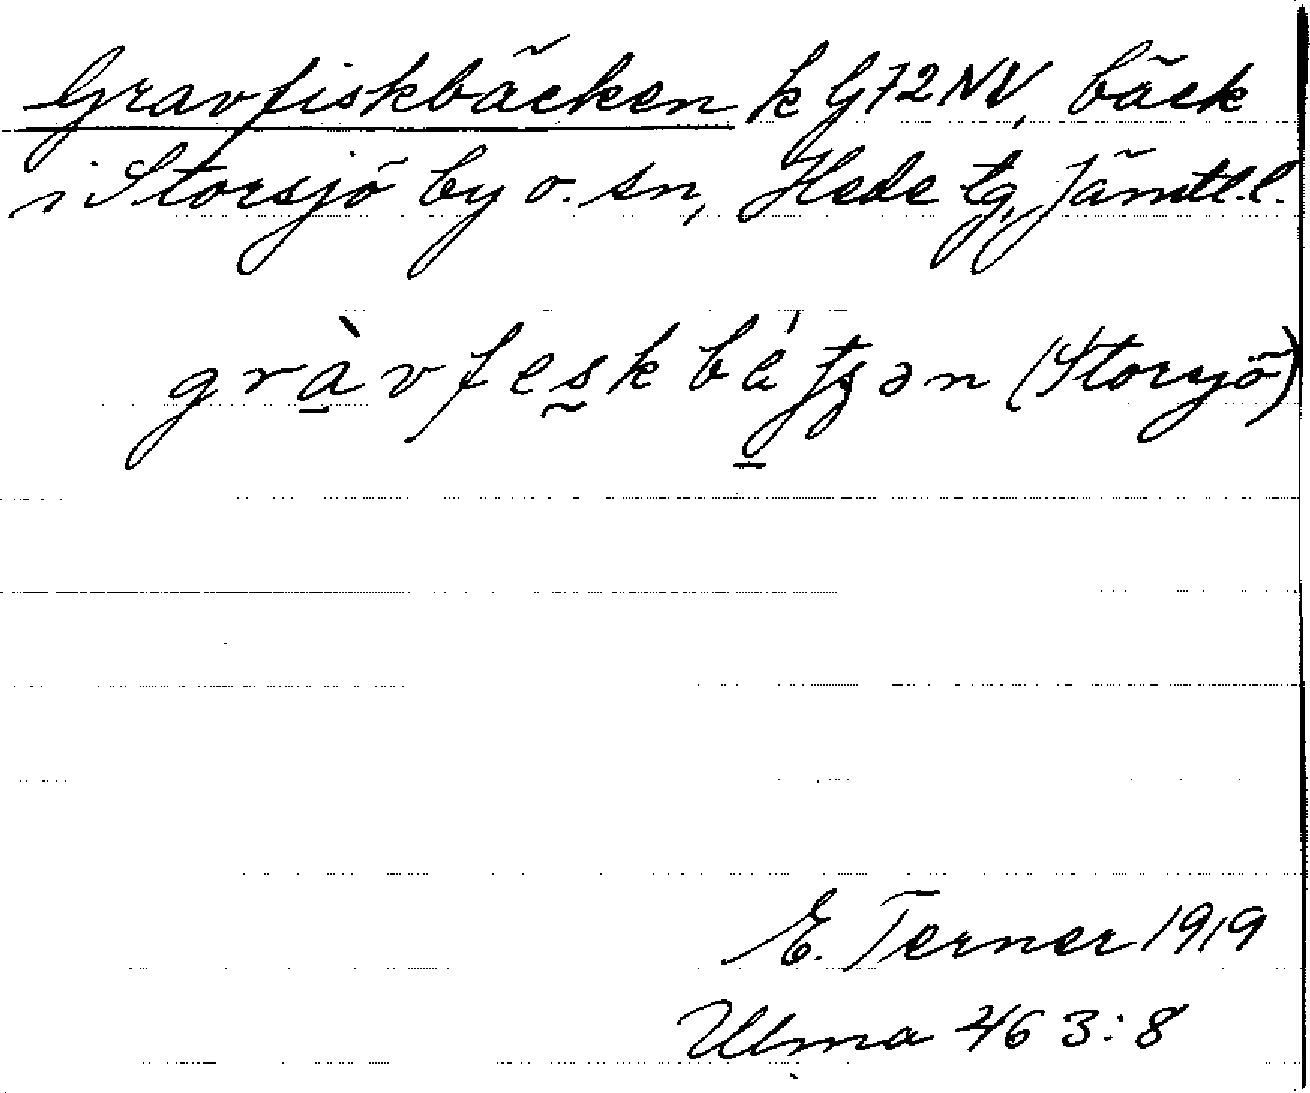 Gravfiskbäcken k G72NV, bäck
i Storsjö by o. sn, Hede tg, Jämtl.l.
(Storsjö)
E. Terner 1919
Ulma 463:8